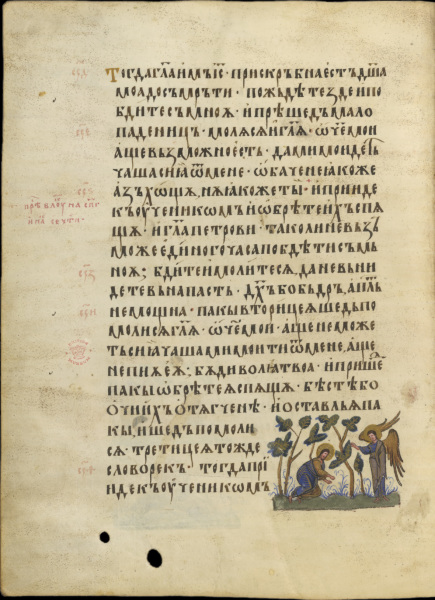 Тогда гл҃а имъ і҃с· прискръбна естъ дш҃а
моа до съмръти· пожьдѣте зде и по
бдите съ мноѫ· и прѣшедъ мало
паде ницъ· молѧ сѧ и гл҃ѧ· ѡч҃е мои
аще възможно есть· да мимоидеть
чаша сиа ѿ мене· ѡбаче не ꙗкоже
азъ хощѫ, нѫ ꙗкоже ты· и прииде
къ оученикѡмъ и ѡбрѣте ихъ спѧ
щѧ· и гл҃а петрови· тако ли не възъ
може единого часа побдѣти съ мъ
ноѫ; бдите и молите сѧ, да не вьни
дете въ напасть· дх҃ъ бо бъдръ, а пль
немощна· пакы въторицеѫ шедъ по
моли сѧ гл҃ѧ· ѡч҃е мои· аще не може
тъ сиа чаша мимоити ѿ мене, аще
не пиѫ еѫ· бѫди волѣ твоа· и пришед
пакы ѡбрѣте ѧ спѧщѧ· бѣстѣ бо
очи ихъ отѧгъченѣ· и оставль ѧ па
кы, и шедъ помоли
сѧ· третицеѫ тожде
слово рекъ· тогда прі
иде къ оученикѡмъ